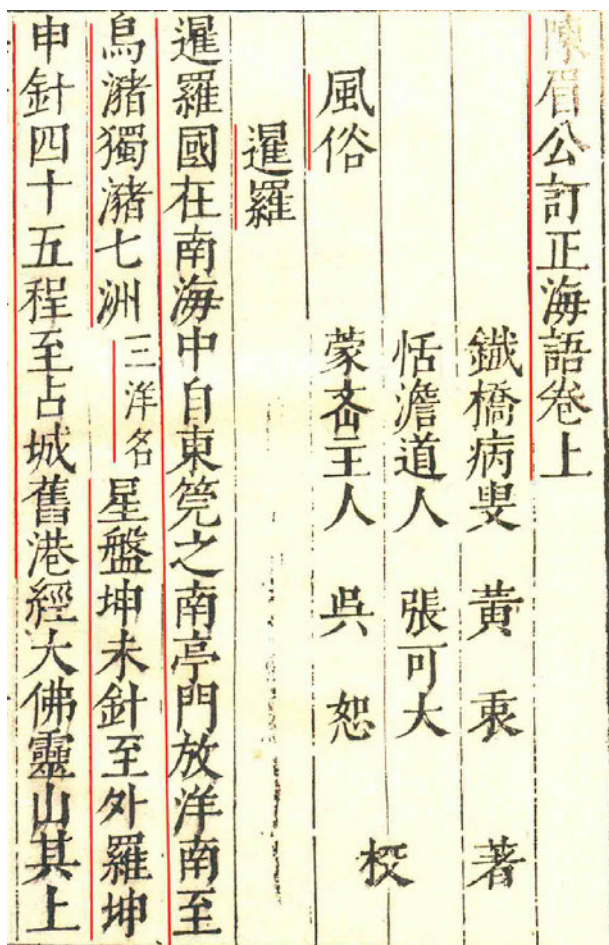 陳眉公訂正海語卷上
鐵橋病叟 黃衷 著
恬澹道人 張可大
蒙 主人 吳恕 校
風俗
暹羅
暹羅國在南海中自東筦之南亭門放洋南至
烏潴獨潴七洲三洋名星盤坤未針至外羅坤
申針四十五程至占城舊港經大佛靈山其上